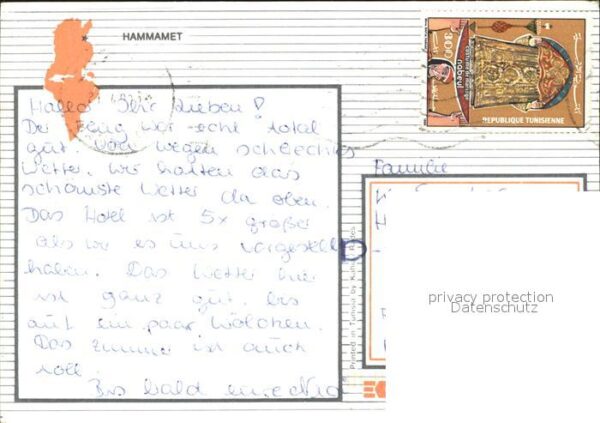 HAMMAMET
300
nabeul
REPUBLIQUE TUNISIENNE
Hallo Ihr Lieben!
Der Flug war echt total
gut. Von wegen schlechtes
Wetter. Wir hatten das
schönste Wetter da oben.
Das Hotel ist 5x größer
als wir es uns vorgestellt
haben. Das Wetter hier
ist ganz gut, bis
auf ein paar Wölkchen.
Das Zimmer ist auch
toll.
Bis bald eure
Familie
D
Printed in Tunisia by
privacy protection
Datenschutz